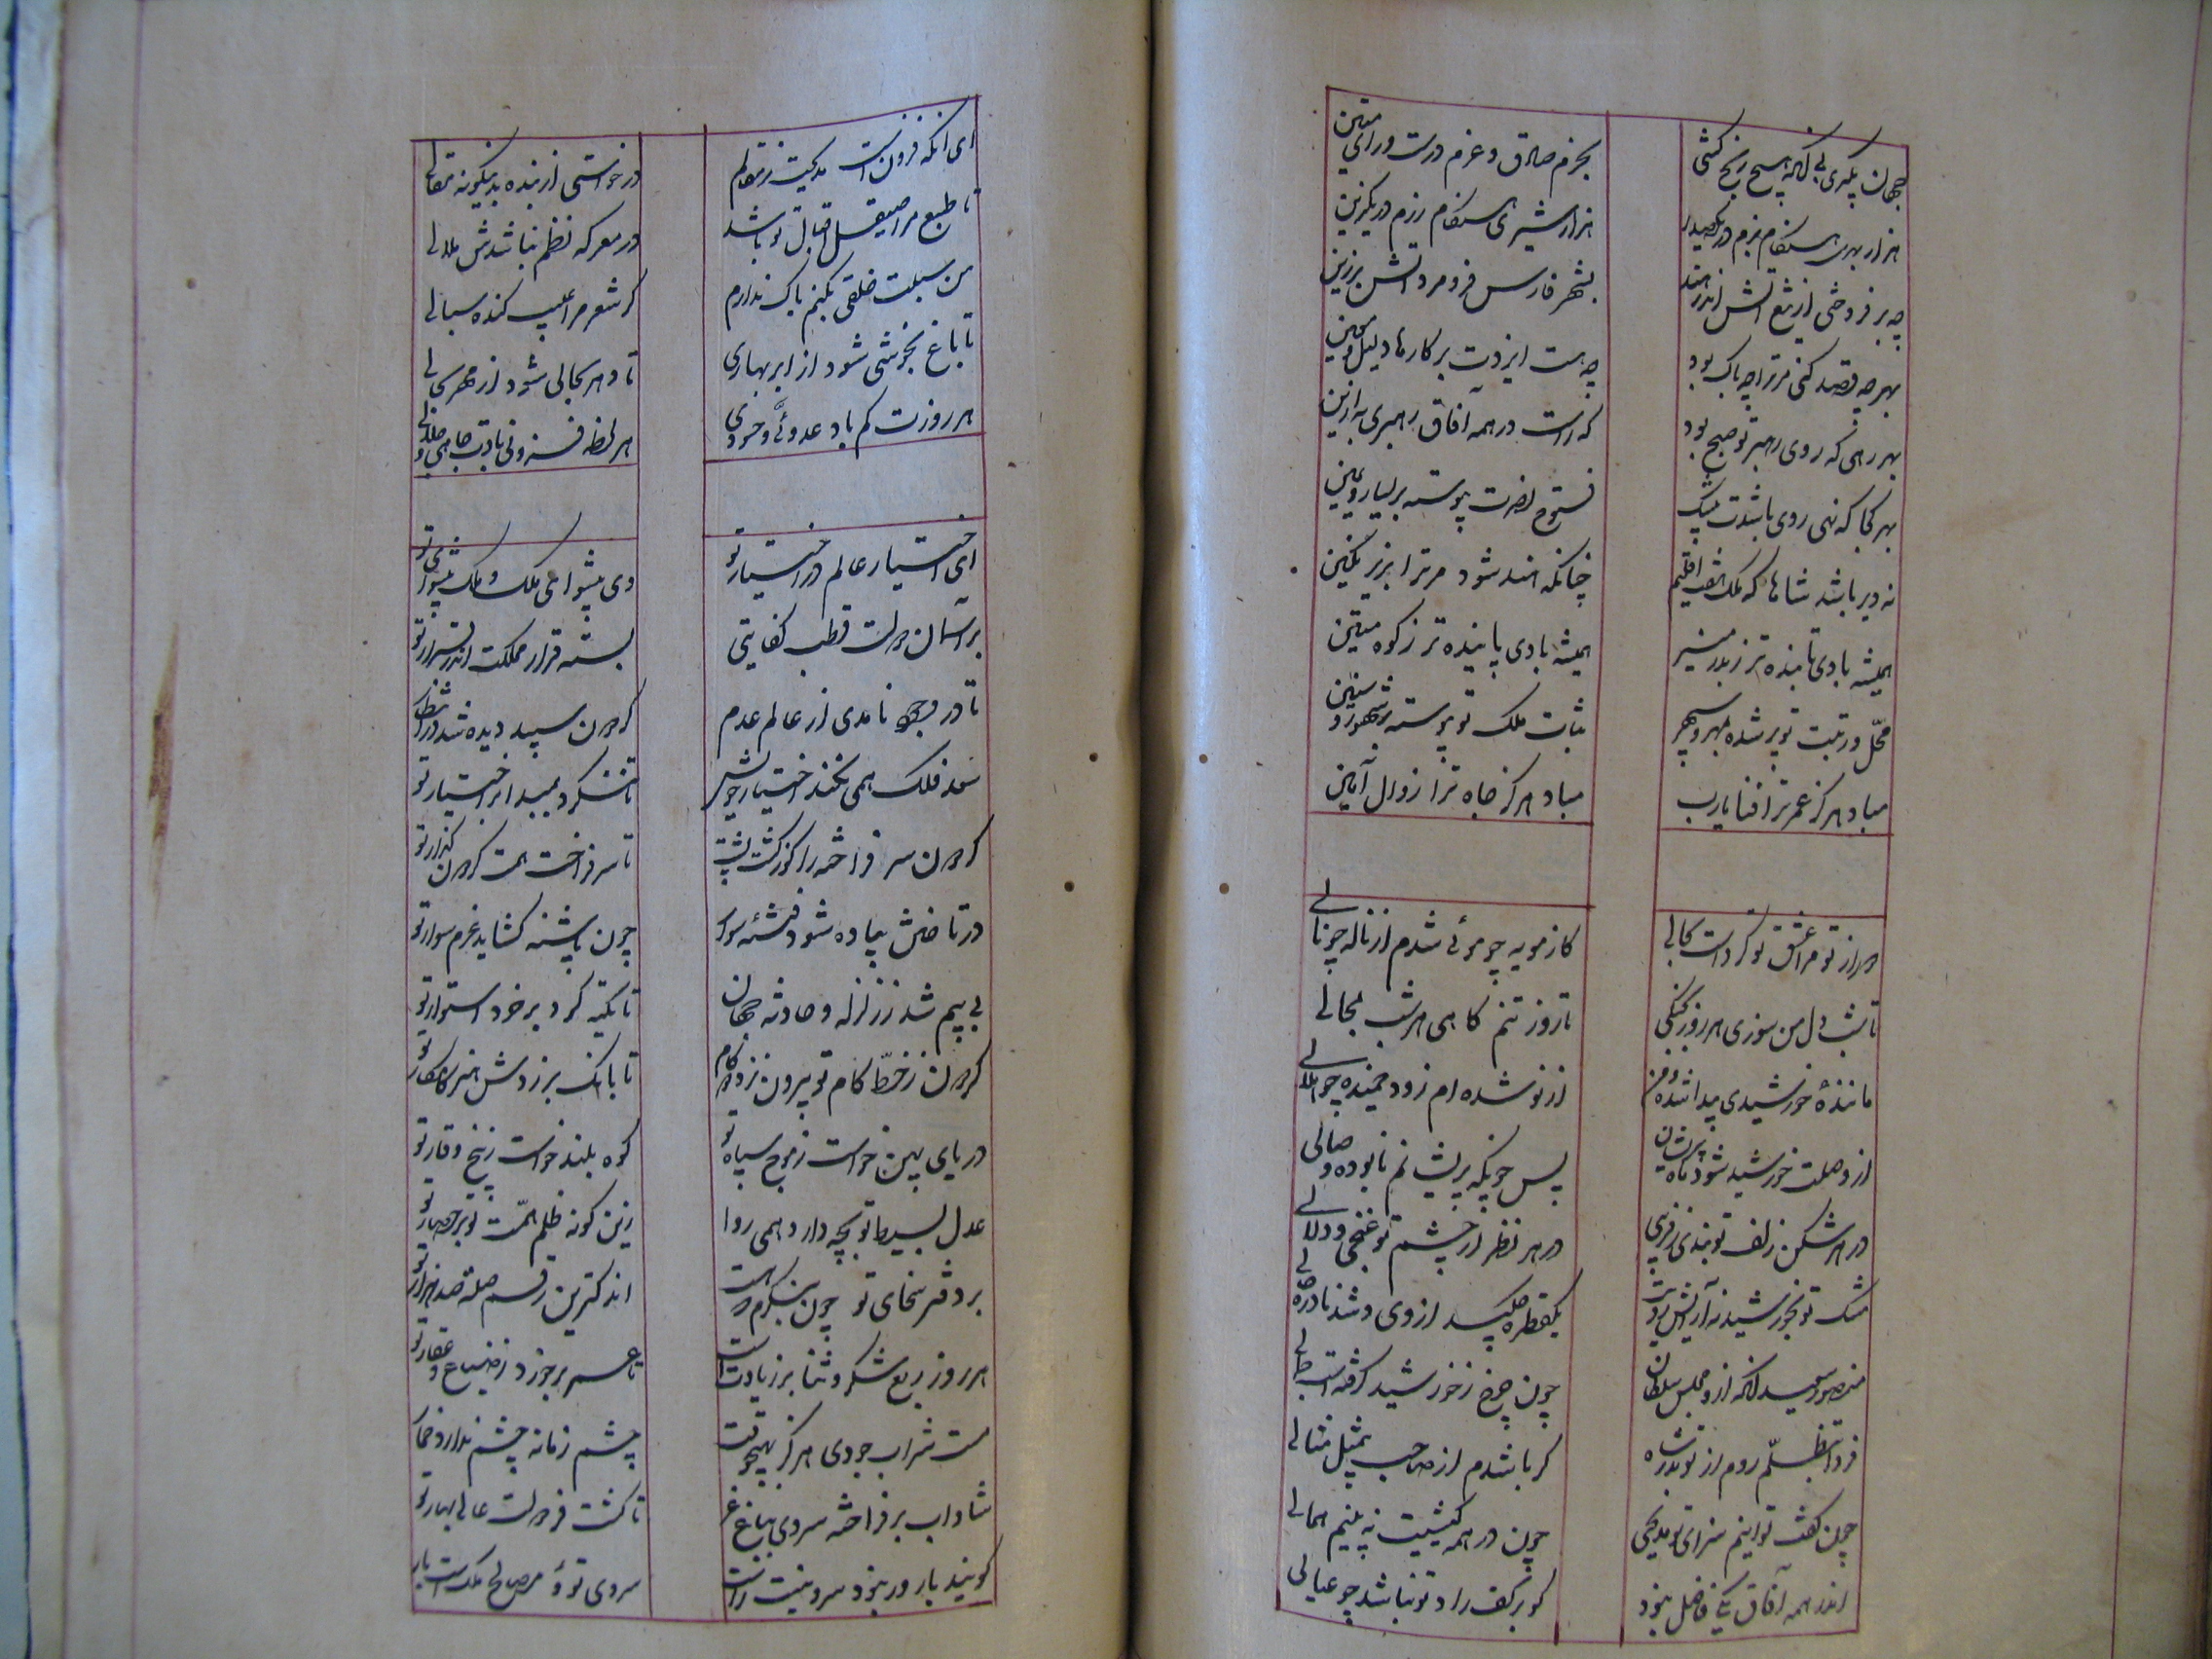 جهان بگیری بی آنکه هیچ رنج کشی
بحزم صادق و عزم درست و رای متین
هزار بدری هنگام بزم در یک صدر
هزار شیری هنگام رزم در یک زین
چه بر فروختی از تیغ آتش اندر هند
بشهر فارس فرو مرد آتش برزین
بهرچه قصد کنی مر ترا چه باک بود
چه هست ایزدت بر کارها دلیل و معین
بهر رهی که روی رهبر تو صبح بود
که راست در همه آفاق رهبری به ازین
بهر کجا که نهی روی باشدت بیشک
فتوح و نصرت پیوسته بر یسار و یمین
نه دیر باشد شاها که ملک هفت اقلیم
چنانکه هند شود مر ترا بزیر نگین
همیشه بادی تابنده تر ز بدر منیر
همیشه بادی پاینده تر ز کوه متین
محلّ و رتبت تو بر شده بمهر و سپهر
ثبات ملک تو پیوسته بر شهور و سنین
مباد هرگز عمر ترا فنا یارب
مباد هرگز جاه ترا زوال آمین
هر از تو مرا عشق تو کرد است بحالی
کاز مویه چو موئی شدم از ناله چو نالی
تا شب دل من سوزی هر روز بجنگی
تا روز تنم کاهی هر شب بمحالی
مانندهٔ خورشیدی پیدا شده و من
از نو شده ام زود خمیده چو هلالی
از وصلت خورشید شود ماه پریشان
پس چونکه پریشانم نابوده وصالی
در هر شکن زلف تو بندی ز فریبی
در هر نظر از چشم تو غنجی و دلالی
مشک تو بخورشید نه آرایش بود
یکقطره چکید از وی و شد نادره خالی
منصور سعید آنکه از و مجلس سلطان
چون چرخ ز خورشید گرفته است جمالی
فردا بتظلّم روم از تو بدر شاه
گر باشدم از صاحب بمثل مثالی
چون گفت توانیم سزای تو مدیحی
چون در همه گیتیت نه بینم همالی
اندر همه آفاق یکی فاضل نبود
کو بر کف راد تو نباشد چو عیالی
ای آنکه فزون است مدیحت ز مقالم
درخواستی از بنده بدینگونه مقالی
تا طبع مرا صیقل اقبال تو باشد
در معرکه نظم نباشدش ملالی
من سبلت خلقی بکنم باک ندارم
گر شعر مرا عیب کنده سبالی
تا باغ بخوشی شود از ابر بهاری
تا دهر بحالی شود از مهر بحالی
هر روزت کم باد عدوئی و حسودی
هر لحظه فزونی بادت جاهی و جلالی
ای اختیار عالم در اختیار تو
وی پیشوای ملک و ملک پیشوای تو
بر آسمان دولت قطب کفایتی
بسته قرار مملکت اندر قرار تو
تا در وجود نامدی از عالم عدم
گردون سپید دیده شد در انتظار تو
سعد فلک همی نکند اختیار خویش
تا ننگرد بمبدا بر اختیار تو
گردون سر فراخته را کوژ گشت پشت
تا سر فراخت همت گردون گذار تو
در تاختنش پیاده شود فتنه سوار
چون پاشنه گشاید عزم سوار تو
بی بیم شد ز زلزله و حادثه جهان
تا تکیه کرد بر خرد استوار تو
گردون ز خطّ کام تو بیرون نزد کام
تا بانک بر زدش هنر کامکار تو
دریای بهن خواست ز موج سپاه تو
کوه بلند خواست ز بیخ وقار تو
عدل بسیط تو بچه دارد همی روا
زین گونه ظلم همّت تو بر جوار تو
بر دفتر سخای تو چون بنگرم درست
اندکترین رقم صله صد هزار تو
هر روز ریع شکر و ثنا بر زیادتست
تا عسر بر خورد ز ضیاع و عقار تو
مست شراب جودی هرگز بهیچوقت
چشم زمانه چشم ندارد خمار
شاداب بر فراخته سروی بباغ عز
تا گشت فر دولت عالی بهار تو
گویند بار ور نبود سرو نیست راست
سروی تو و مصالح ملک است بار